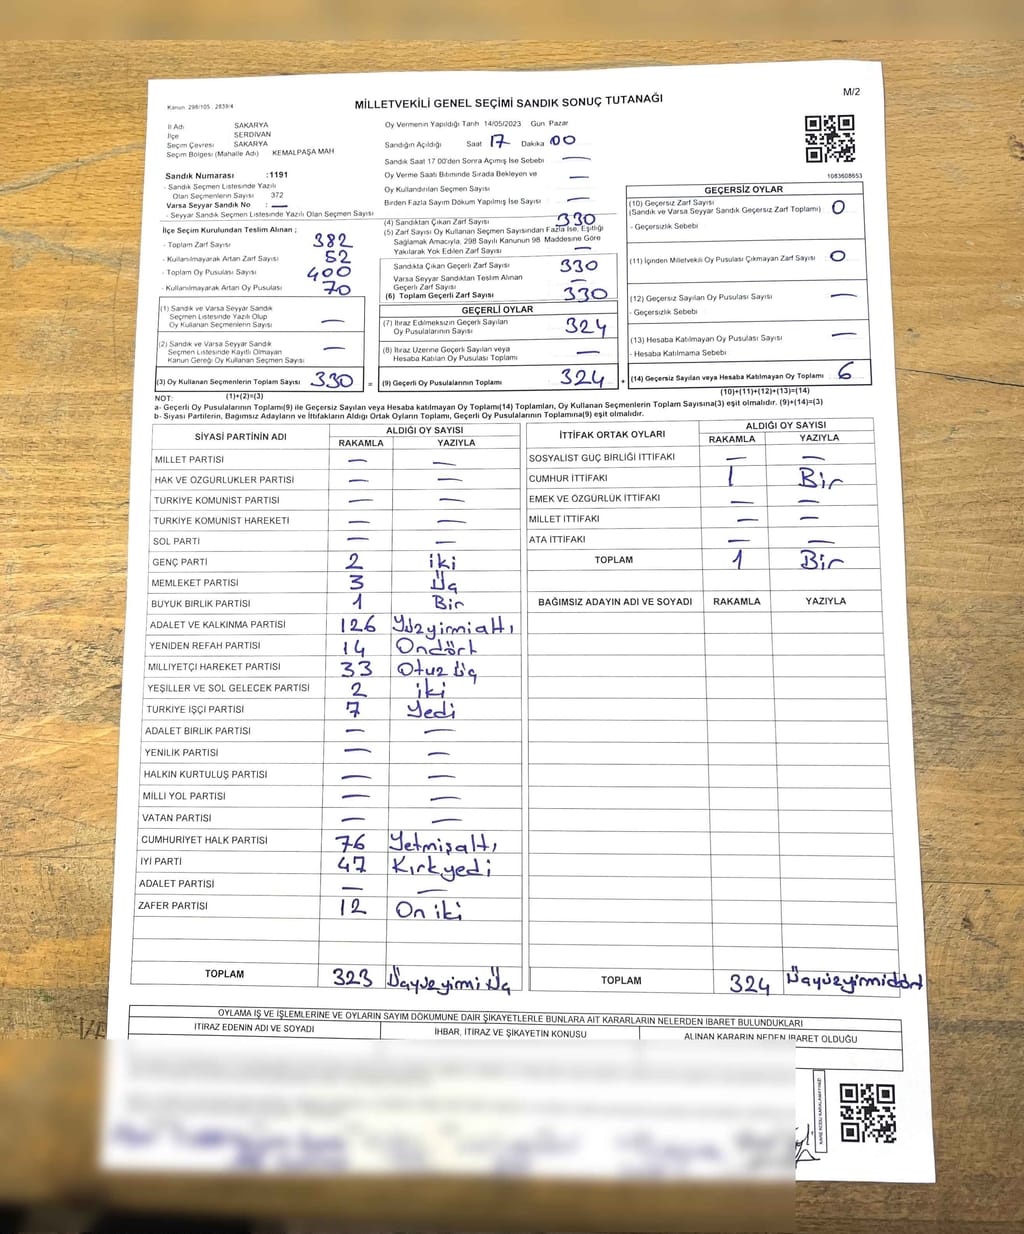 Kanun: 298/105 ; 2839/4
MİLLETVEKİLİ GENEL SEÇİMİ SANDIK SONUÇ TUTANAĞI
M/2
İl Adı SAKARYA
İlçe SERDİVAN
Seçim Çevresi SAKARYA
Seçim Bölgesi (Mahalle Adı) KEMALPAŞA MAH
Sandık Numarası :1191
- Sandık Seçmen Listesinde Yazılı
Olan Seçmenlerin Sayısı 372
Varsa Seyyar Sandık No : —
- Seyyar Sandık Seçmen Listesinde Yazılı Olan Seçmen Sayısı
İlçe Seçim Kurulundan Teslim Alınan ;
- Toplam Zarf Sayısı 382
- Kullanılmayarak Artan Zarf Sayısı 52
- Toplam Oy Pusulası Sayısı 400
- Kullanılmayarak Artan Oy Pusulası 70
(1) Sandık ve Varsa Seyyar Sandık
Seçmen Listesinde Yazılı Olup
Oy Kullanan Seçmenlerin Sayısı —
(2) Sandık ve Varsa Seyyar Sandık
Seçmen Listesinde Kayıtlı Olmayan
Kanun Gereği Oy Kullanan Seçmen Sayısı —
(3) Oy Kullanan Seçmenlerin Toplam Sayısı 330 =
(1)+(2)=(3)
Oy Vermenin Yapıldığı Tarih 14/05/2023 Gün Pazar
Sandığın Açıldığı Saat 17 Dakika 00
Sandık Saat 17.00'den Sonra Açımış İse Sebebi —
Oy Verme Saati Bitiminde Sırada Bekleyen ve
Oy Kullandırılan Seçmen Sayısı —
Birden Fazla Sayım Döküm Yapılmış İse Sayısı —
(4) Sandıktan Çıkan Zarf Sayısı 330
(5) Zarf Sayısı Oy Kullanan Seçmen Sayısından Fazla İse, Eşitliği
Sağlamak Amacıyla, 298 Sayılı Kanunun 98. Maddesine Göre
Yakılarak Yok Edilen Zarf Sayısı —
Sandıkta Çıkan Geçerli Zarf Sayısı 330
Varsa Seyyar Sandıktan Teslim Alınan
Geçerli Zarf Sayısı —
(6) Toplam Geçerli Zarf Sayısı 330
GEÇERLİ OYLAR
(7) İtiraz Edilmeksizin Geçerli Sayılan
Oy Pusulalarının Sayısı 324
(8) İtiraz Üzerine Geçerli Sayılan veya
Hesaba Katılan Oy Pusulası Toplamı —
(9) Geçerli Oy Pusulalarının Toplamı 324 +
1083608653
GEÇERSİZ OYLAR
(10) Geçersiz Zarf Sayısı
(Sandık ve Varsa Seyyar Sandık Geçersiz Zarf Toplamı) 0
- Geçersizlik Sebebi
(11) İçinden Milletvekili Oy Pusulası Çıkmayan Zarf Sayısı 0
(12) Geçersiz Sayılan Oy Pusulası Sayısı —
- Geçersizlik Sebebi
(13) Hesaba Katılmayan Oy Pusulası Sayısı —
- Hesaba Katılmama Sebebi
(14) Geçersiz Sayılan veya Hesaba Katılmayan Oy Toplamı 6
(10)+(11)+(12)+(13)=(14)
NOT:
a- Geçerli Oy Pusulalarının Toplamı(9) ile Geçersiz Sayılan veya Hesaba katılmayan Oy Toplamı(14) Toplamları, Oy Kullanan Seçmenlerin Toplam Sayısına(3) eşit olmalıdır. (9)+(14)=(3)
b- Siyasi Partilerin, Bağımsız Adayların ve İttifakların Aldığı Ortak Oyların Toplamı, Geçerli Oy Pusulalarının Toplamına(9) eşit olmalıdır.
SİYASİ PARTİNİN ADI ALDIĞI OY SAYISI
RAKAMLA YAZIYLA
MİLLET PARTİSİ — —
HAK VE ÖZGÜRLÜKLER PARTİSİ — —
TÜRKİYE KOMÜNİST PARTİSİ — —
TÜRKİYE KOMÜNİST HAREKETİ — —
SOL PARTİ — —
GENÇ PARTİ 2 iki
MEMLEKET PARTİSİ 3 Üç
BÜYÜK BİRLİK PARTİSİ 1 Bir
ADALET VE KALKINMA PARTİSİ 126 Yüzyirmialtı
YENİDEN REFAH PARTİSİ 14 Ondört
MİLLİYETÇİ HAREKET PARTİSİ 33 Otuz üç
YEŞİLLER VE SOL GELECEK PARTİSİ 2 iki
TÜRKİYE İŞÇİ PARTİSİ 7 Yedi
ADALET BİRLİK PARTİSİ — —
YENİLİK PARTİSİ — —
HALKIN KURTULUŞ PARTİSİ — —
MİLLİ YOL PARTİSİ — —
VATAN PARTİSİ — —
CUMHURİYET HALK PARTİSİ 76 Yetmişaltı
İYİ PARTİ 47 Kırkyedi
ADALET PARTİSİ — —
ZAFER PARTİSİ 12 On iki
TOPLAM 323 Üçyüzyirmi Üç
İTTİFAK ORTAK OYLARI ALDIĞI OY SAYISI
RAKAMLA YAZIYLA
SOSYALİST GÜÇ BİRLİĞİ İTTİFAKI — —
CUMHUR İTTİFAKI 1 Bir
EMEK VE ÖZGÜRLÜK İTTİFAKI — —
MİLLET İTTİFAKI — —
ATA İTTİFAKI — —
TOPLAM 1 Bir
BAĞIMSIZ ADAYIN ADI VE SOYADI RAKAMLA YAZIYLA
TOPLAM 324 Üçyüzyirmidört
OYLAMA İŞ VE İŞLEMLERİNE VE OYLARIN SAYIM DÖKÜMÜNE DAİR ŞİKAYETLERLE BUNLARA AİT KARARLARIN NELERDEN İBARET BULUNDUKLARI
İTİRAZ EDENİN ADI VE SOYADI İHBAR, İTİRAZ VE ŞİKAYETİN KONUSU ALINAN KARARIN NEDEN İBARET OLDUĞU